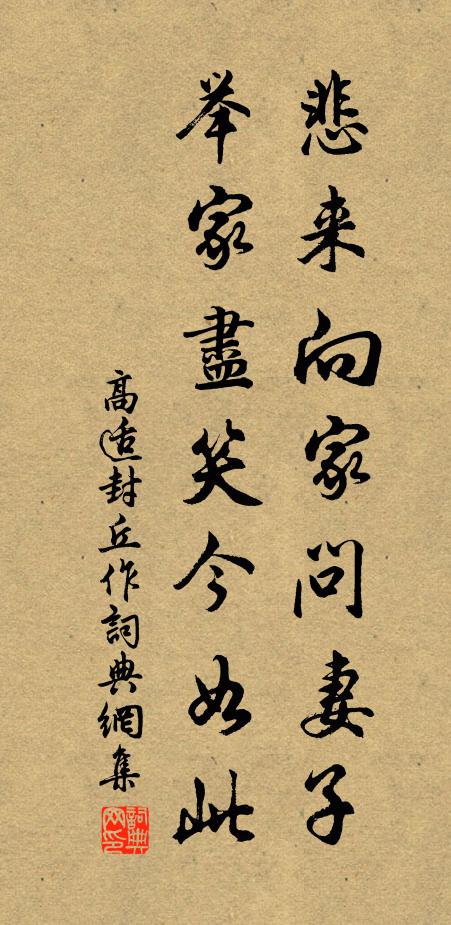 悲来向家问妻子
举家盡笑今如此
高适封丘作詞典網集
詞典网印